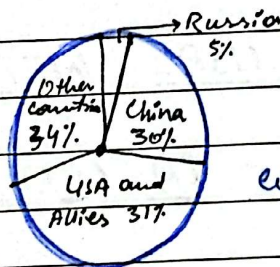 Russia
5%
Other
countries
34%
China
30%
USA and
Allies 31%